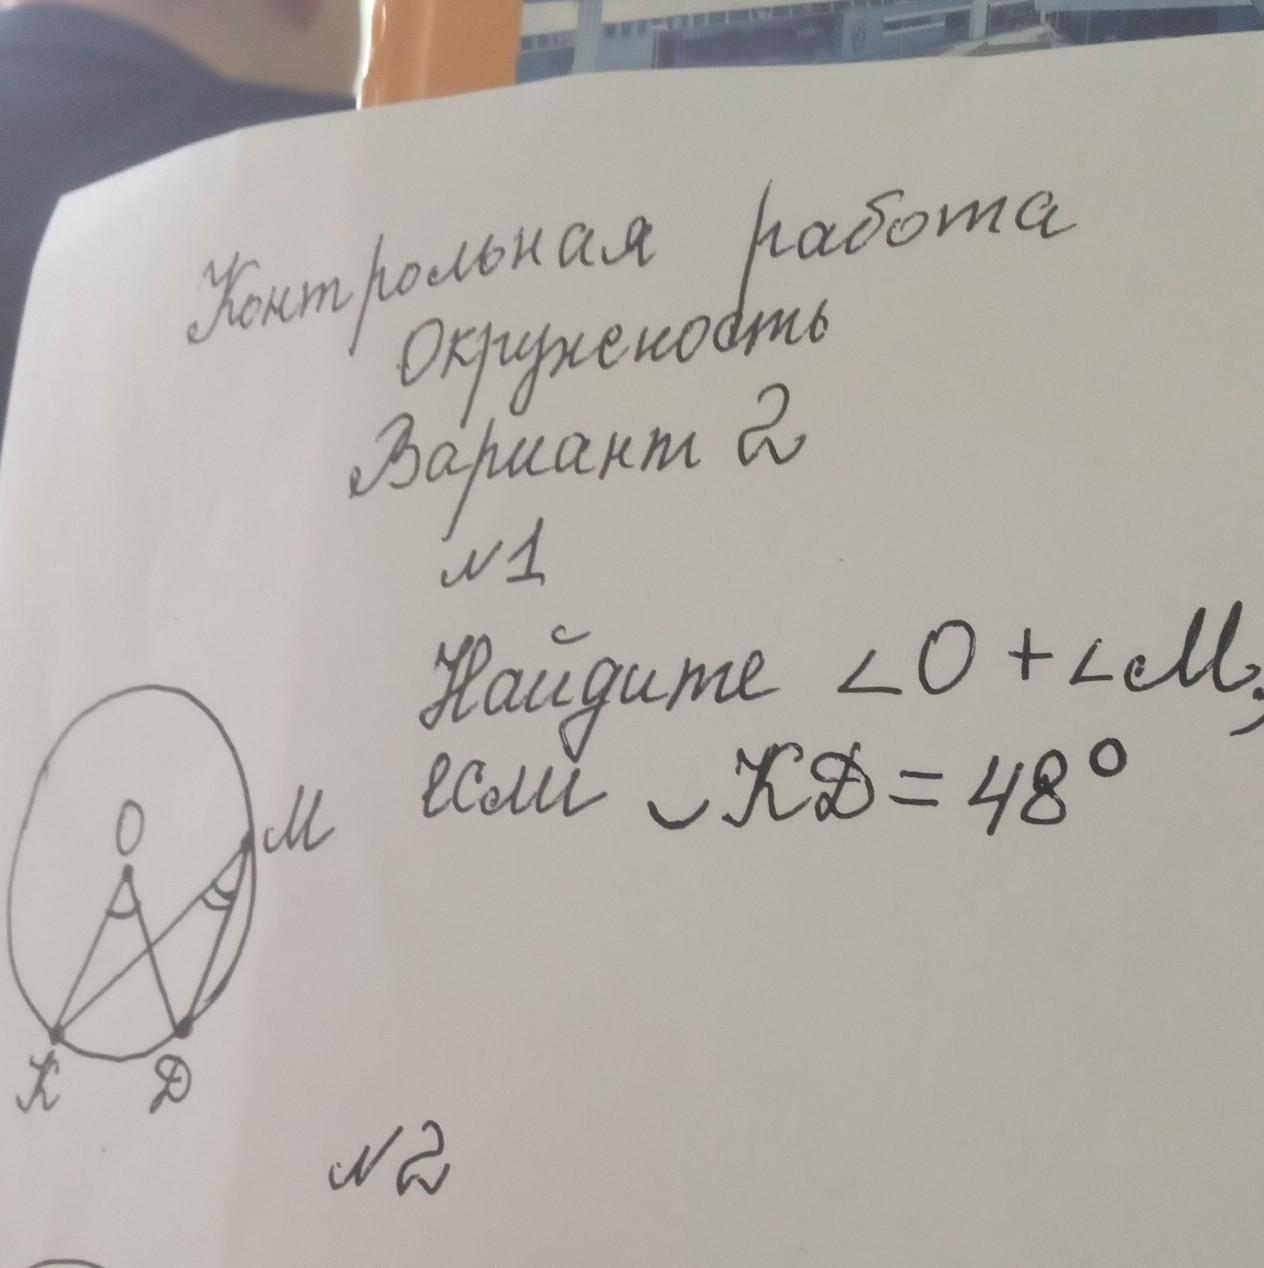 Контрольная работа
Окружность
Вариант 2
№1
Найдите ∠О + ∠М,
если ◡КД = 48°
О
М
К Д
№2